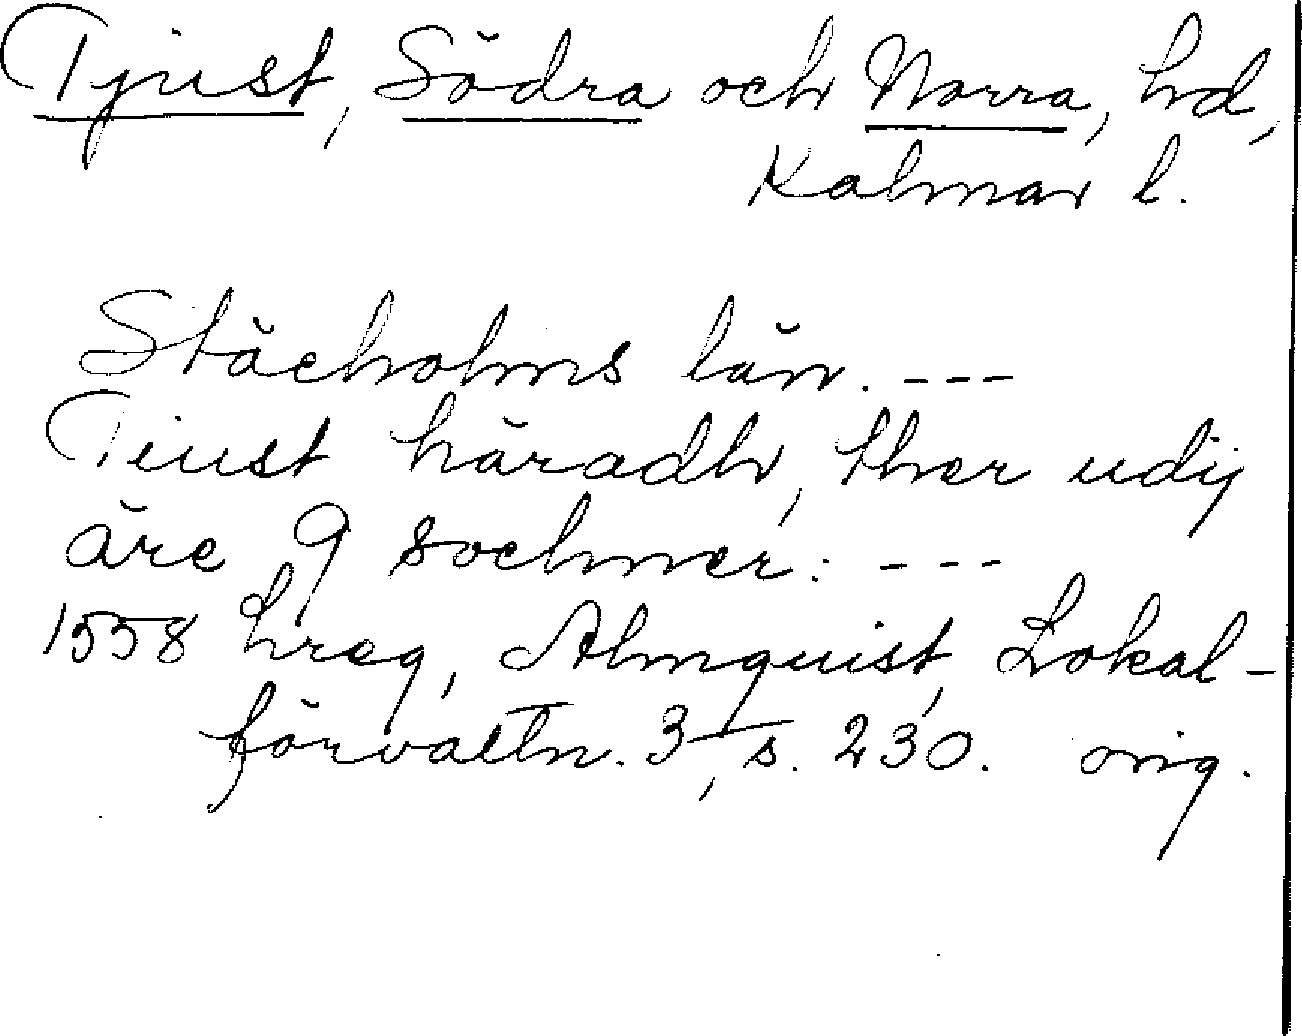 Tjust, Södra och Norra, hd,
Kalmar l.
Stächolms län. ---
Tiust häradh, ther udij
äre 9 sochner: ---
1558 hreg, Almquist, Lokal-
förvaltn. 3, s. 230. orig.